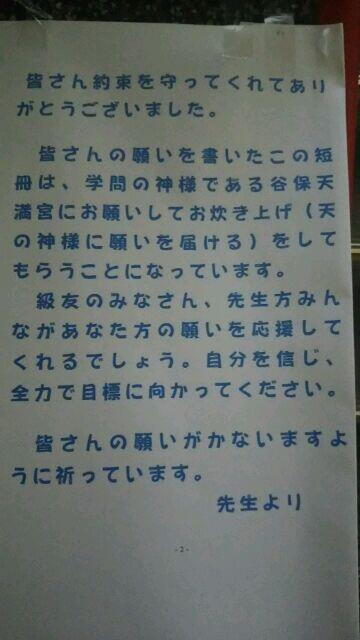 皆さん約束を守ってくれてあり
がとうございました。
皆さんの願いを書いたこの短
冊は、学問の神様である谷保天
満宮にお願いしてお炊き上げ（天
の神様に願いを届ける）をして
もらうことになっています。
級友のみなさん、先生方みん
ながあなた方の願いを応援して
くれるでしょう。自分を信じ、
全力で目標に向かってください。
皆さんの願いがかないますよ
うに祈っています。
先生より
-2-